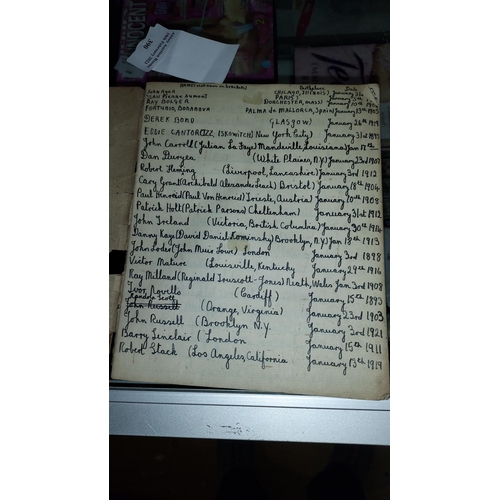 INNOCENT
190
NAMES (real name in brackets) Birthplace Date
John Agar (CHICAGO, ILLINOIS) January 31st
JEAN PIERRE AUMONT (PARIS) January 5th
RAY BOLGER (DORCHESTER, MASS) January 10th
FORTUNIO, BONANOVA PALMA de MALLORCA, Spain) January 13th
DEREK BOND GLASGOW) January 26th 1919
EDDIE CANTOR (IZZ, ISKOWITCH) New York City) January 31st
John Carroll (Julian La Faye) Mandeville, Louisiana) Jan 17th
Dan Duryea (White Plaines, N.Y) January 23rd 1907
Robert Fleming (Liverpool, Lancashire) January 3rd 1912
Cary Grant (Archibald Alexander Leach) Bristol) January 18th 1904
Paul Henreid (Paul Von Henreid) Trieste, Austria) January 10th 1909
Patrick Holt (Patrick Parsons) Cheltenham) January 31st 1912
John Ireland (Victoria, British Columbia) January 30th 1914
Danny Kaye (David Daniel Kominsky) Brooklyn, N.Y) Jan 18th 1913
John Loder (John Muir Lowe) London January 3rd 1898
Victor Mature (Louisville, Kentucky January 29th 1916
Ray Milland (Reginald Truscott-Jones) Neath, Wales Jan 3rd 1908
Ivor Novello (Cardiff) January 15th 1893
Randolph Scott
John Russell (Orange, Virginia) January 23rd 1903
John Russell (Brooklyn N.Y. January 3rd 1921
Barry Sinclair (London January 15th 1911
Robert Stack (Los Angeles, California January 13th 1919